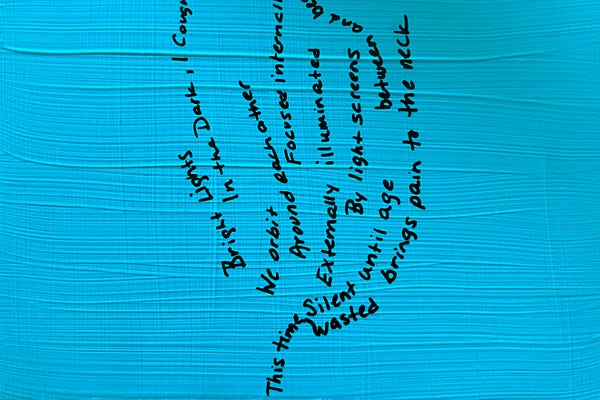 Bright Lights
In the Dark, I
We orbit
Around each other
Focused
Externally illuminated
By light screens
Silent until age
brings pain to the neck
This time
Wasted
between